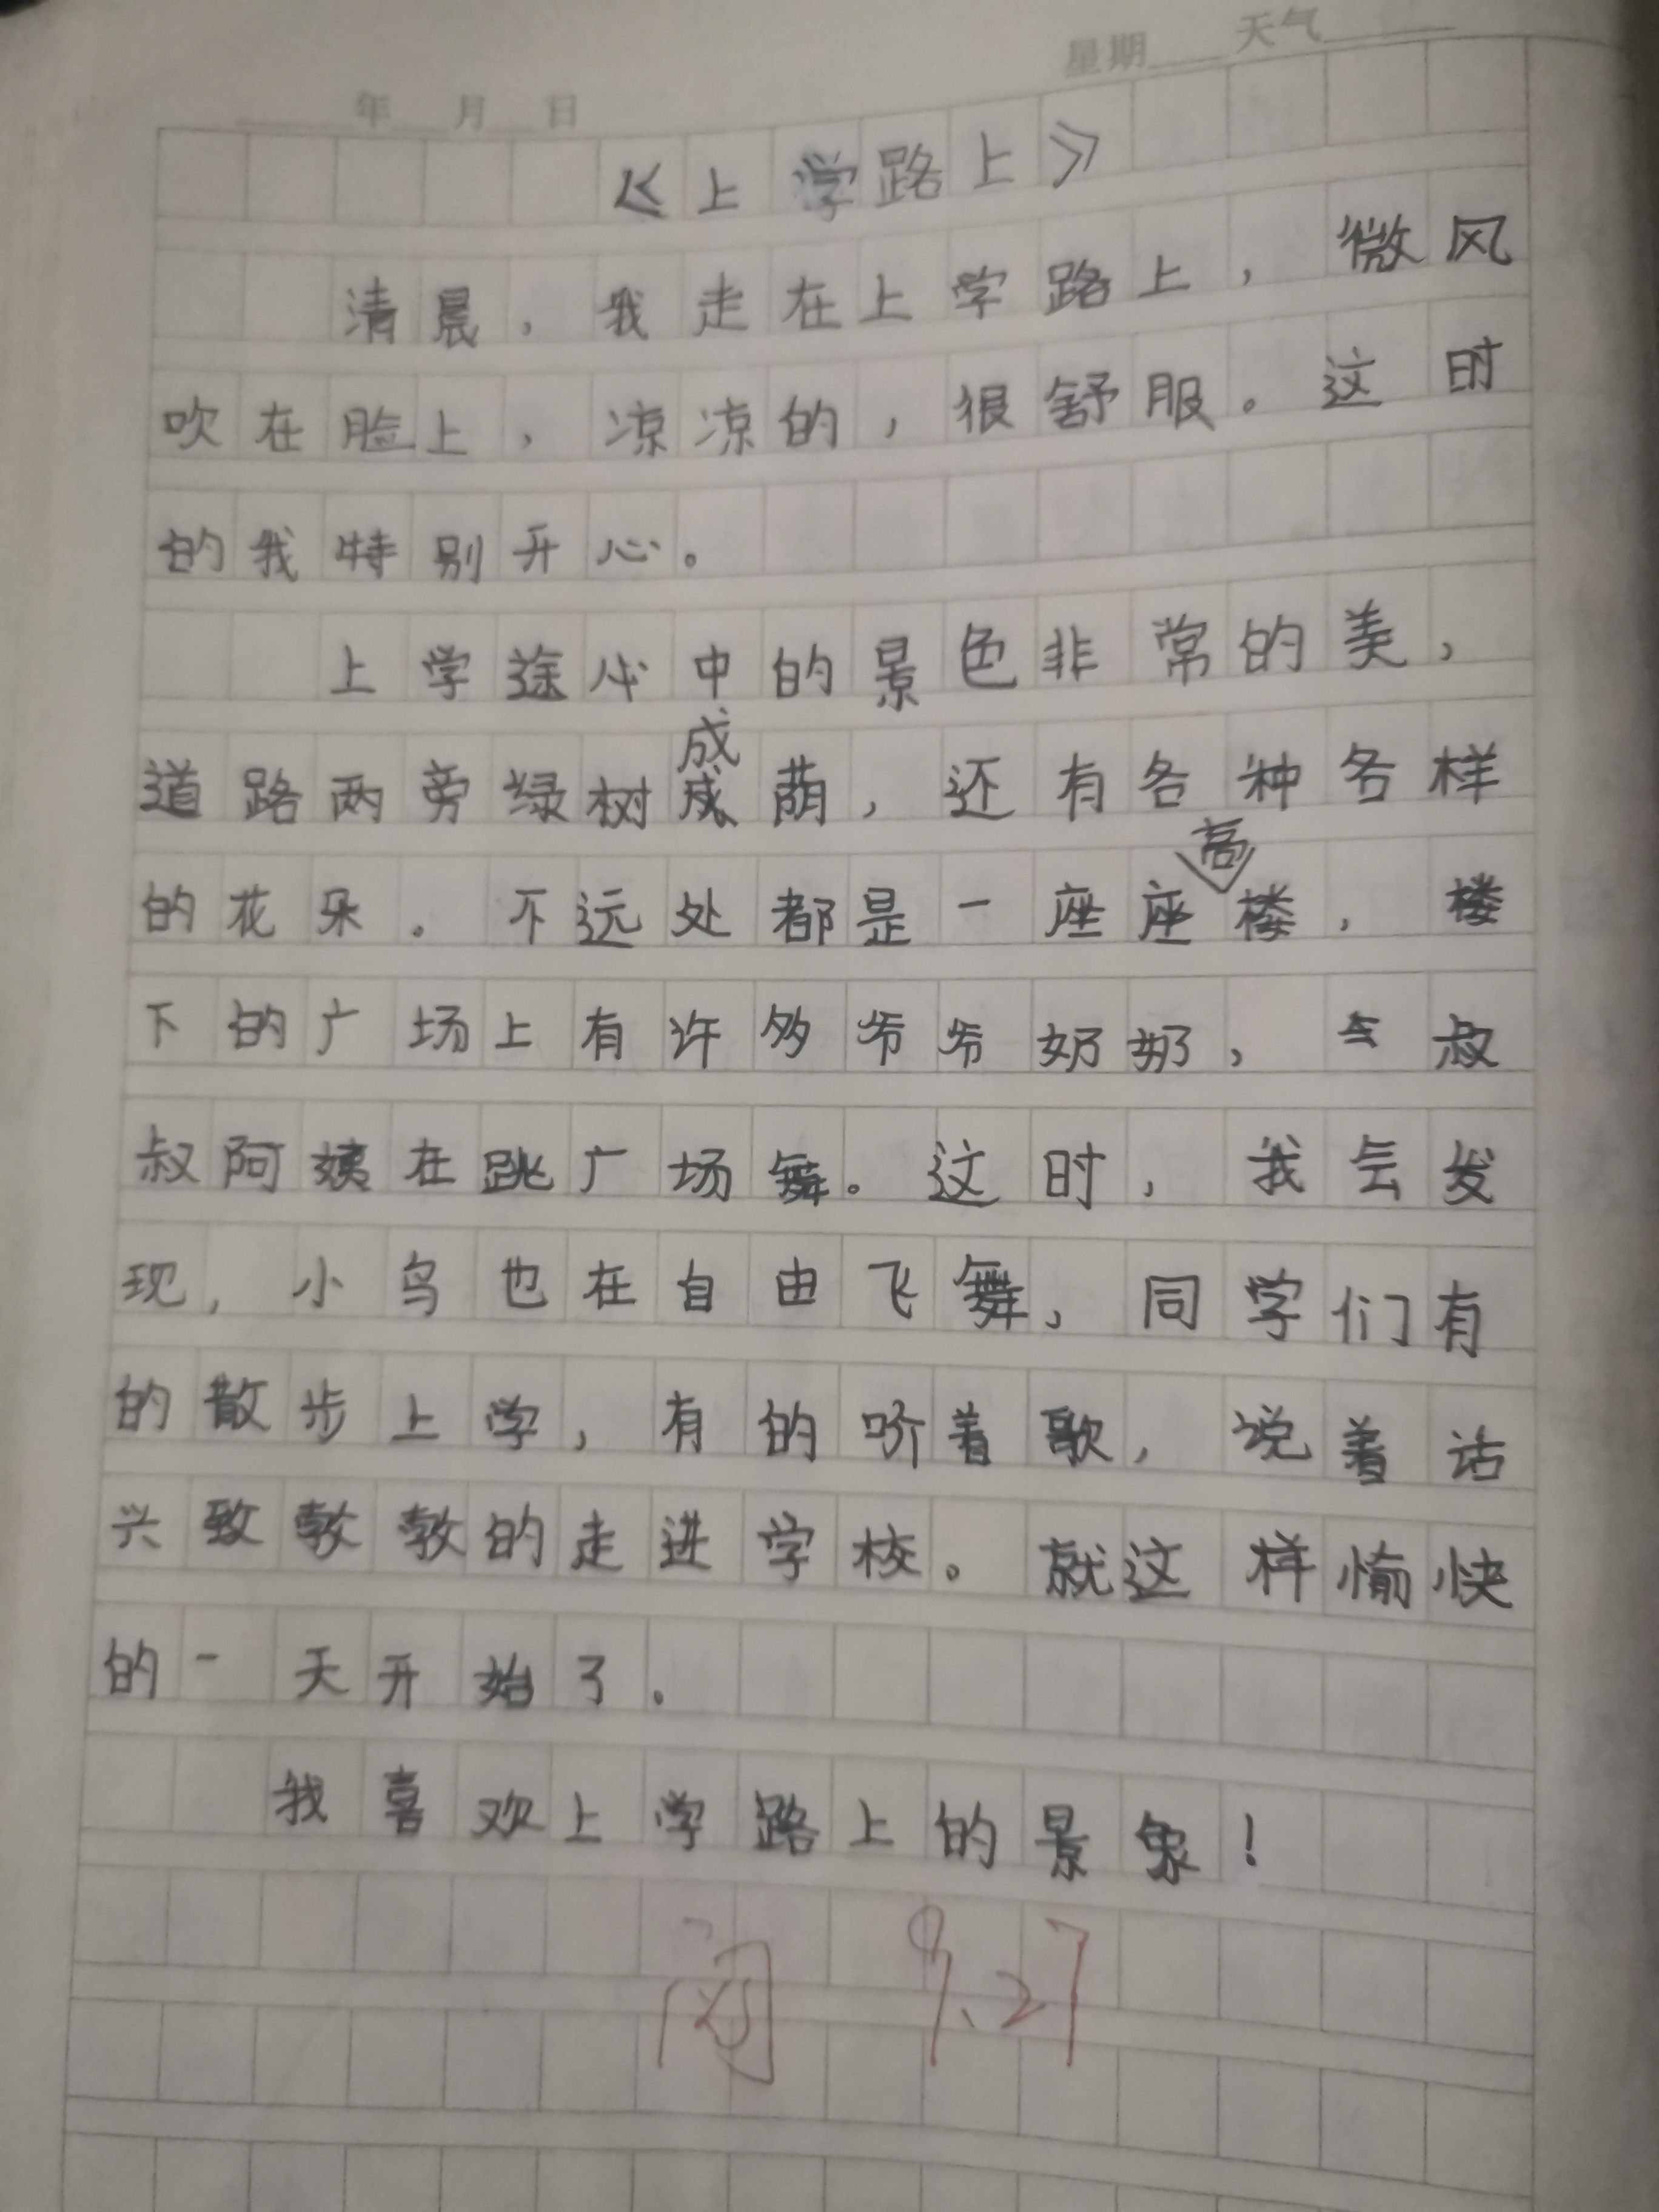 星期 天气
年 月 日
《上学路上》
清晨，我走在上学路上，微风
吹在脸上，凉凉的，很舒服。这时
的我特别开心。
上学途中的景色非常的美，
道路两旁绿树成荫，还有各种各样
的花朵。不远处都是一座座高楼，楼
下的广场上有许多爷爷奶奶，叔
叔阿姨在跳广场舞。这时，我会发
现，小鸟也在自由飞舞，同学们有
的散步上学，有的哼着歌，说着话
兴致勃勃的走进学校。就这样愉快
的一天开始了。
我喜欢上学路上的景象！
阅 9.27